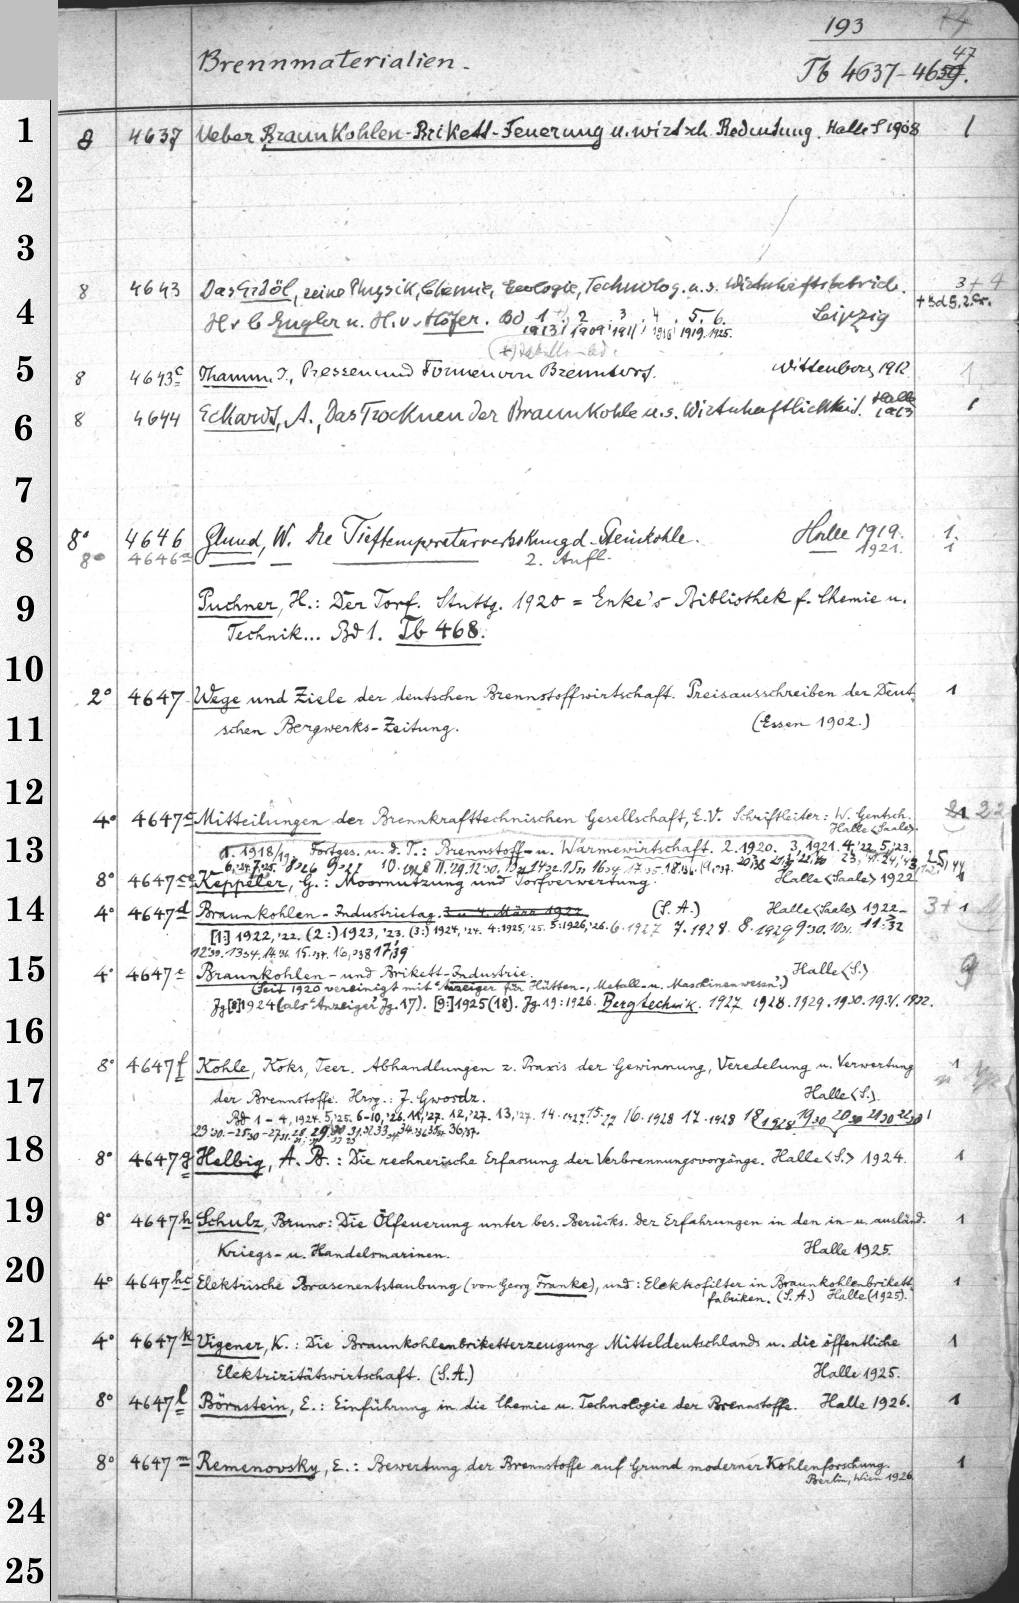 193
Brennmaterialien.
Tb 4637-4659. 47
1
8 4637 Ueber Braunkohlen-Brikett-Feuerung u. wirtsch. Bedeutung. Halle S 1908 1
2
3
8 4643 Das Erdöl, seine Physik, Chemie, Geologie, Technolog. u. s. Wirtschaftsbetrieb. 3+4
+Bd 5, 2.Er.
4
H v C Engler u. H. v. Höfer. Bd 1 2 3 4 5. 6. Leipzig
1913 1909 1911 1916 1919. 1925.
5
8 4643c Thamm, J., Pressen und Formen von Brenntorf. Wittenberg 1912 1
8 4644 Eckardt, A., Das Trocknen der Braunkohle u. s. Wirtschaftlichkeit. Halle 1913 1
6
7
8° 4646 Glund, W. Die Tieftemperaturverkokung d. Steinkohle. Halle 1919. 1.
8
8° 4646a 2. Aufl. 1921. 1
9
Puchner, H.: Der Torf. Stuttg. 1920 = Enke's Bibliothek f. Chemie u.
Technik... Bd 1. Tb 468.
10
2° 4647 Wege und Ziele der deutschen Brennstoffwirtschaft. Preisausschreiben der Deut-
1
11
schen Bergwerks-Zeitung. (Essen 1902.)
12
4° 4647c Mitteilungen der Brennkrafttechnischen Gesellschaft, E.V. Schriftleiter: W. Gentsch. 22
Halle <Saale>.
13
1. 1918/19. Fortges. u. d. T.: Brennstoff- u. Wärmewirtschaft. 2.1920. 3, 1921. 4,'22. 5,'23.
6,'24. 7,'25. 8.26 9.27 10.1928 11.'29. 12.'30.
8° 4647ce Keppeler, G.: Moornutzung und Torfverwertung. Halle <Saale> 1922. 1
14
4° 4647d Braunkohlen-Industrietag. 3. u. 4. März 1922 (S.A.) Halle <Saale> 1922- 3+1
[1:] 1922,'22. (2:) 1923,'23. (3:) 1924,'24. 4:1925,'25. 5:1926,'26. 6.1927 7.1928. 8.1929 9:30. 10:31. 11:32
12:33. 13:34. 14:36. 15:37. 16,:38 17:39
15
4° 4647e Braunkohlen- und Brikett-Industrie. Halle <S.> 9
(Seit 1920 vereinigt mit "Anzeiger für Hütten-, Metall- u. Maschinenwesen".)
Jg. [8] 1924 (als "Anzeiger" Jg. 17). [9:] 1925 (18). Jg. 19:1926. Bergtechnik. 1927 1928. 1929. 1930. 1931. 1932.
16
8° 4647f Kohle, Koks, Teer. Abhandlungen z. Praxis der Gewinnung, Veredelung u. Verwertung 1
17
der Brennstoffe. Hrsg.: J. Gwosdz. Halle <S.>.
Bd 1-4, 1924. 5,'25. 6-10,'26. 11,'27. 12,'27. 13,'27. 14.1927 15.27 16.1928 17.1928 18 1928 19.30 20.30 21.30 22.30
18
8° 4647g Helbig, A. B.: Die rechnerische Erfassung der Verbrennungsvorgänge. Halle <S.> 1924. 1
19
8° 4647h Schulz, Bruno: Die Ölfeuerung unter bes. Berücks. der Erfahrungen in den in- u. ausländ. 1
Kriegs- u. Handelsmarinen. Halle 1925.
20
4° 4647hc Elektrische Brasenentstaubung (von Georg Franke), und: Elektrofilter in Braunkohlenbrikett- 1
fabriken. (S.A.) Halle (1925).
21
4° 4647k Vigener, K.: Die Braunkohlenbriketterzeugung Mitteldeutschlands u. die öffentliche 1
Elektrizitätswirtschaft. (S.A.) Halle 1925.
22
8° 4647l Börnstein, E.: Einführung in die Chemie u. Technologie der Brennstoffe. Halle 1926. 1
23
8° 4647m Remenovsky, E.: Bewertung der Brennstoffe auf Grund moderner Kohlenforschung. 1
Berlin, Wien 1926.
24
25